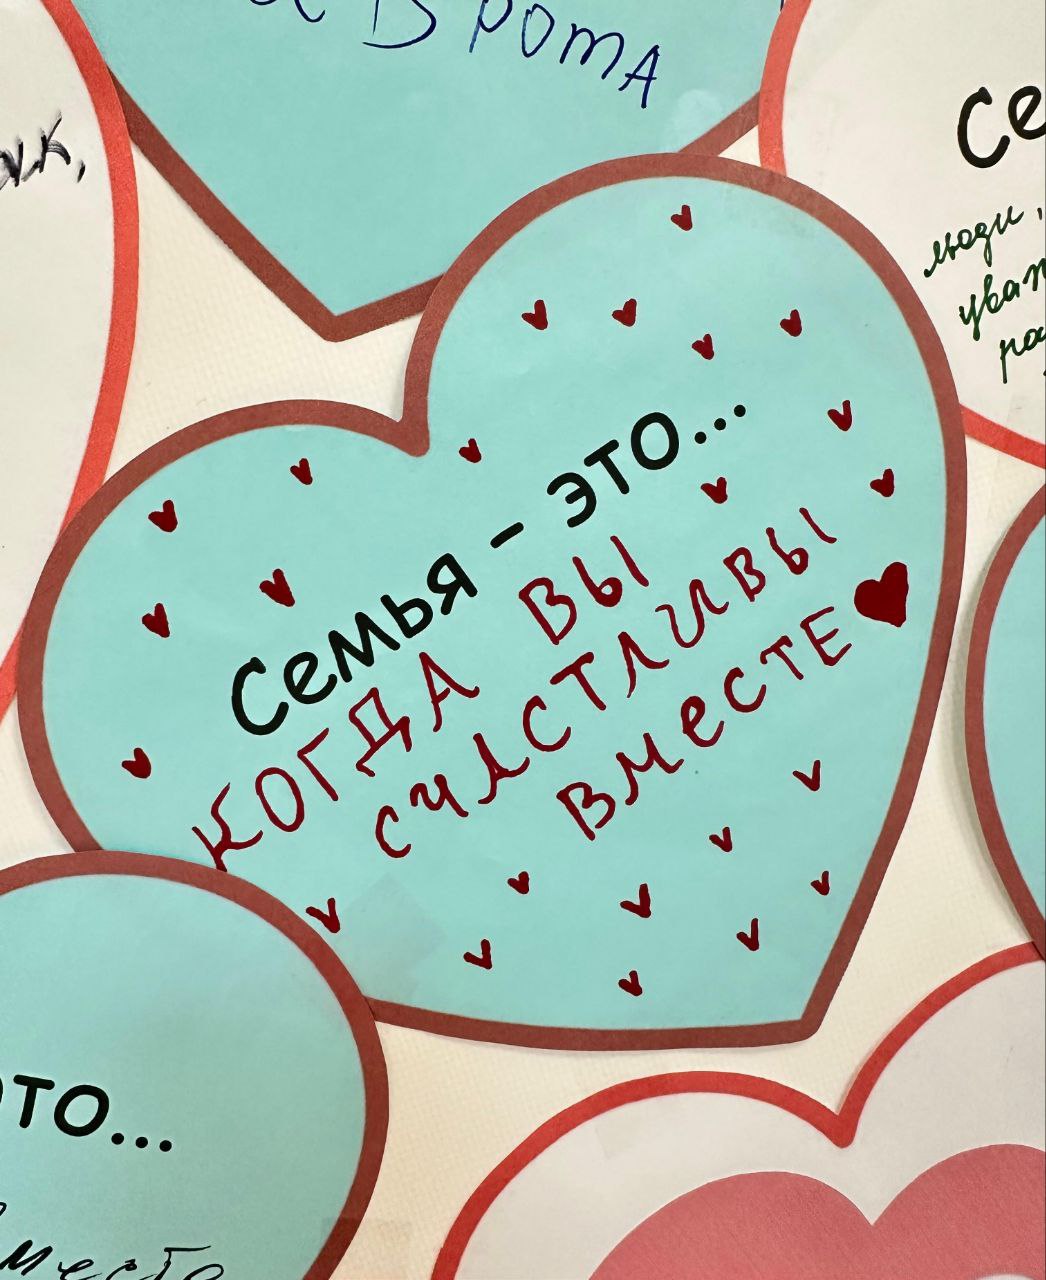 Врота
Се
люди,
Семья – это...
КОГДА ВЫ
СЧАСТЛИВЫ
ВМЕСТЕ
это...
вместе